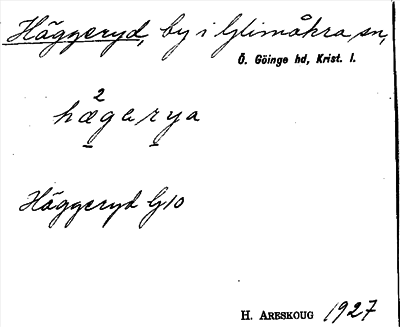 Häggeryd, by i Glimåkra sn,
Ö. Göinge hd, Krist. l.
2
hægarya
Häggeryd G10
H. ARESKOUG 1927